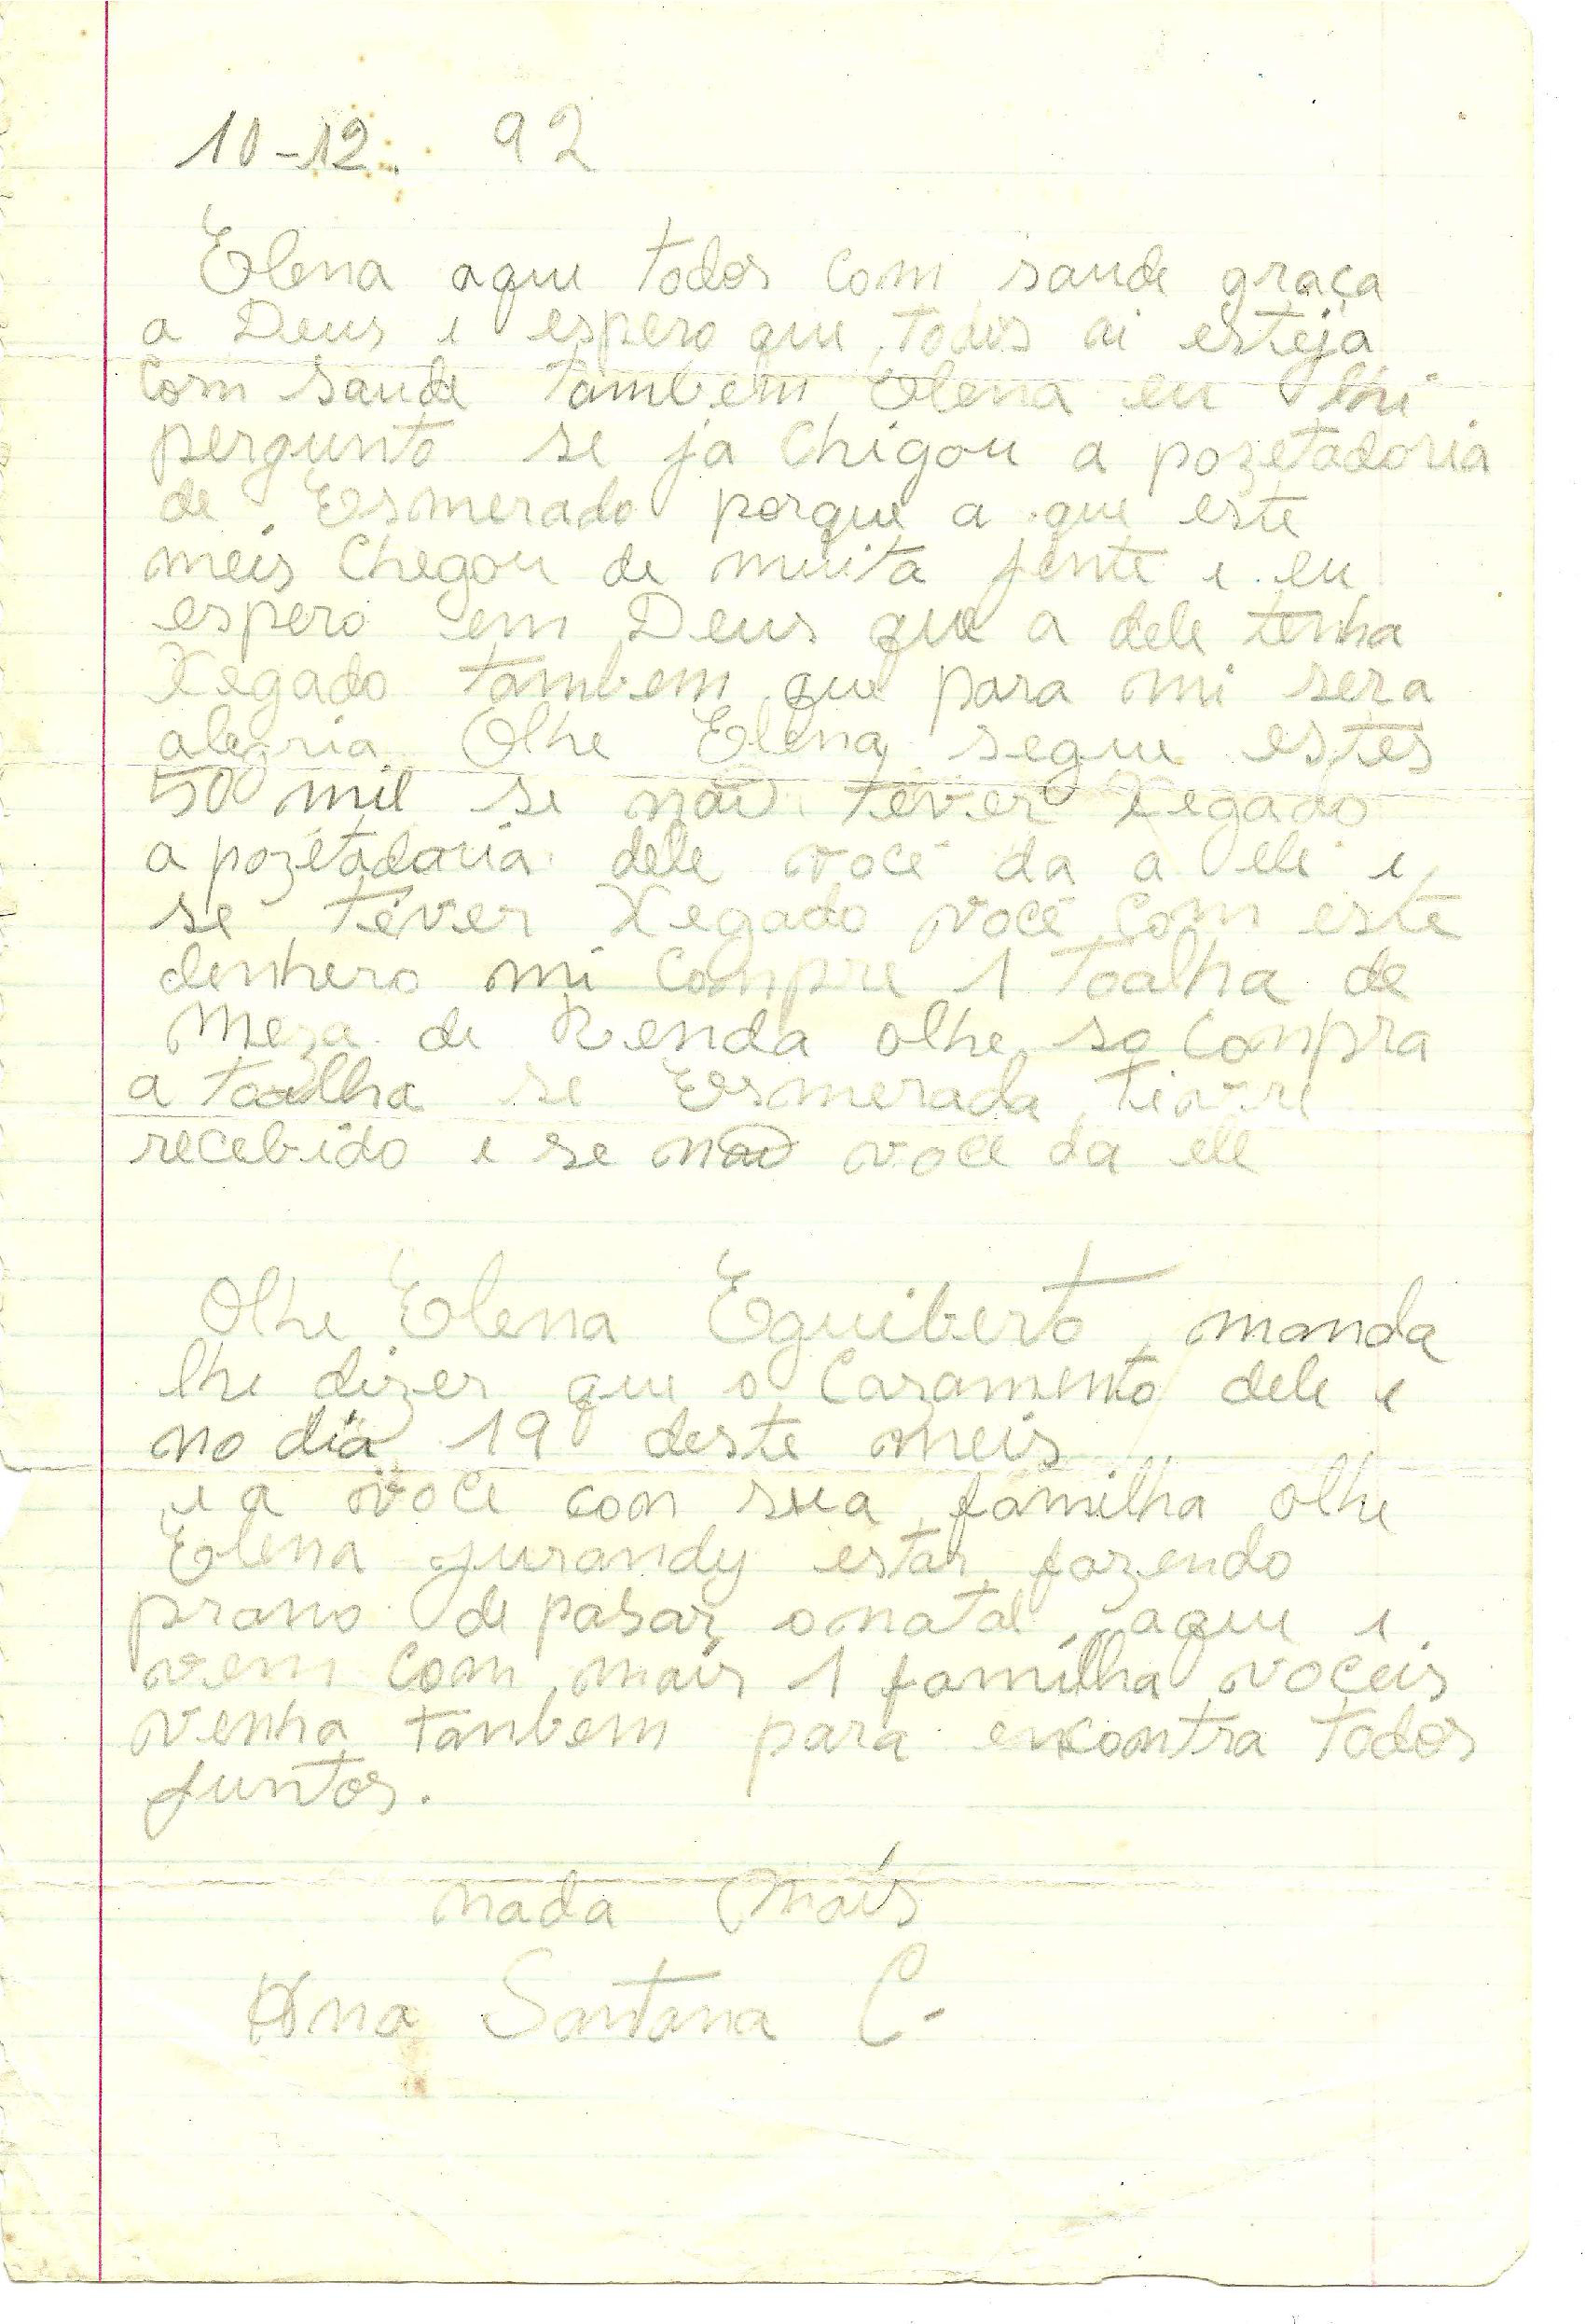 10-12. 92
Elena aqui todos com saude graça
a Deus i espero qui todos ai esteja
com saude tambem Elena eu lhi
pergunto se ja chigou a pozetadoria
de Esmerado porque a qui este
meis chegou de muita jente i eu
espero em Deus que a dele tenha
Xegado tambem que para mi sera
alegria Olhe Elena segue estes
500 mil se não tever Xegado
a pozetadoria dele voce da a ele i
se tever Xegado voce com este
denhero mi compre 1 toalha de
Meza de Renda olhe so compra
a toalha se Esmerada tivere
recebido i se não voce da ele
Olhe Elena Eguiberto manda
lhi dizer qui o cazamento dele e
no dia 19 deste meis
i a voce con sua familha olhe
Elena jurandy estar fazendo
prano de pasar o natal aqui i
vem com mais 1 familha voceis
venha tanbem para encontra todos
juntos.
nada mais
Ana Santana C.